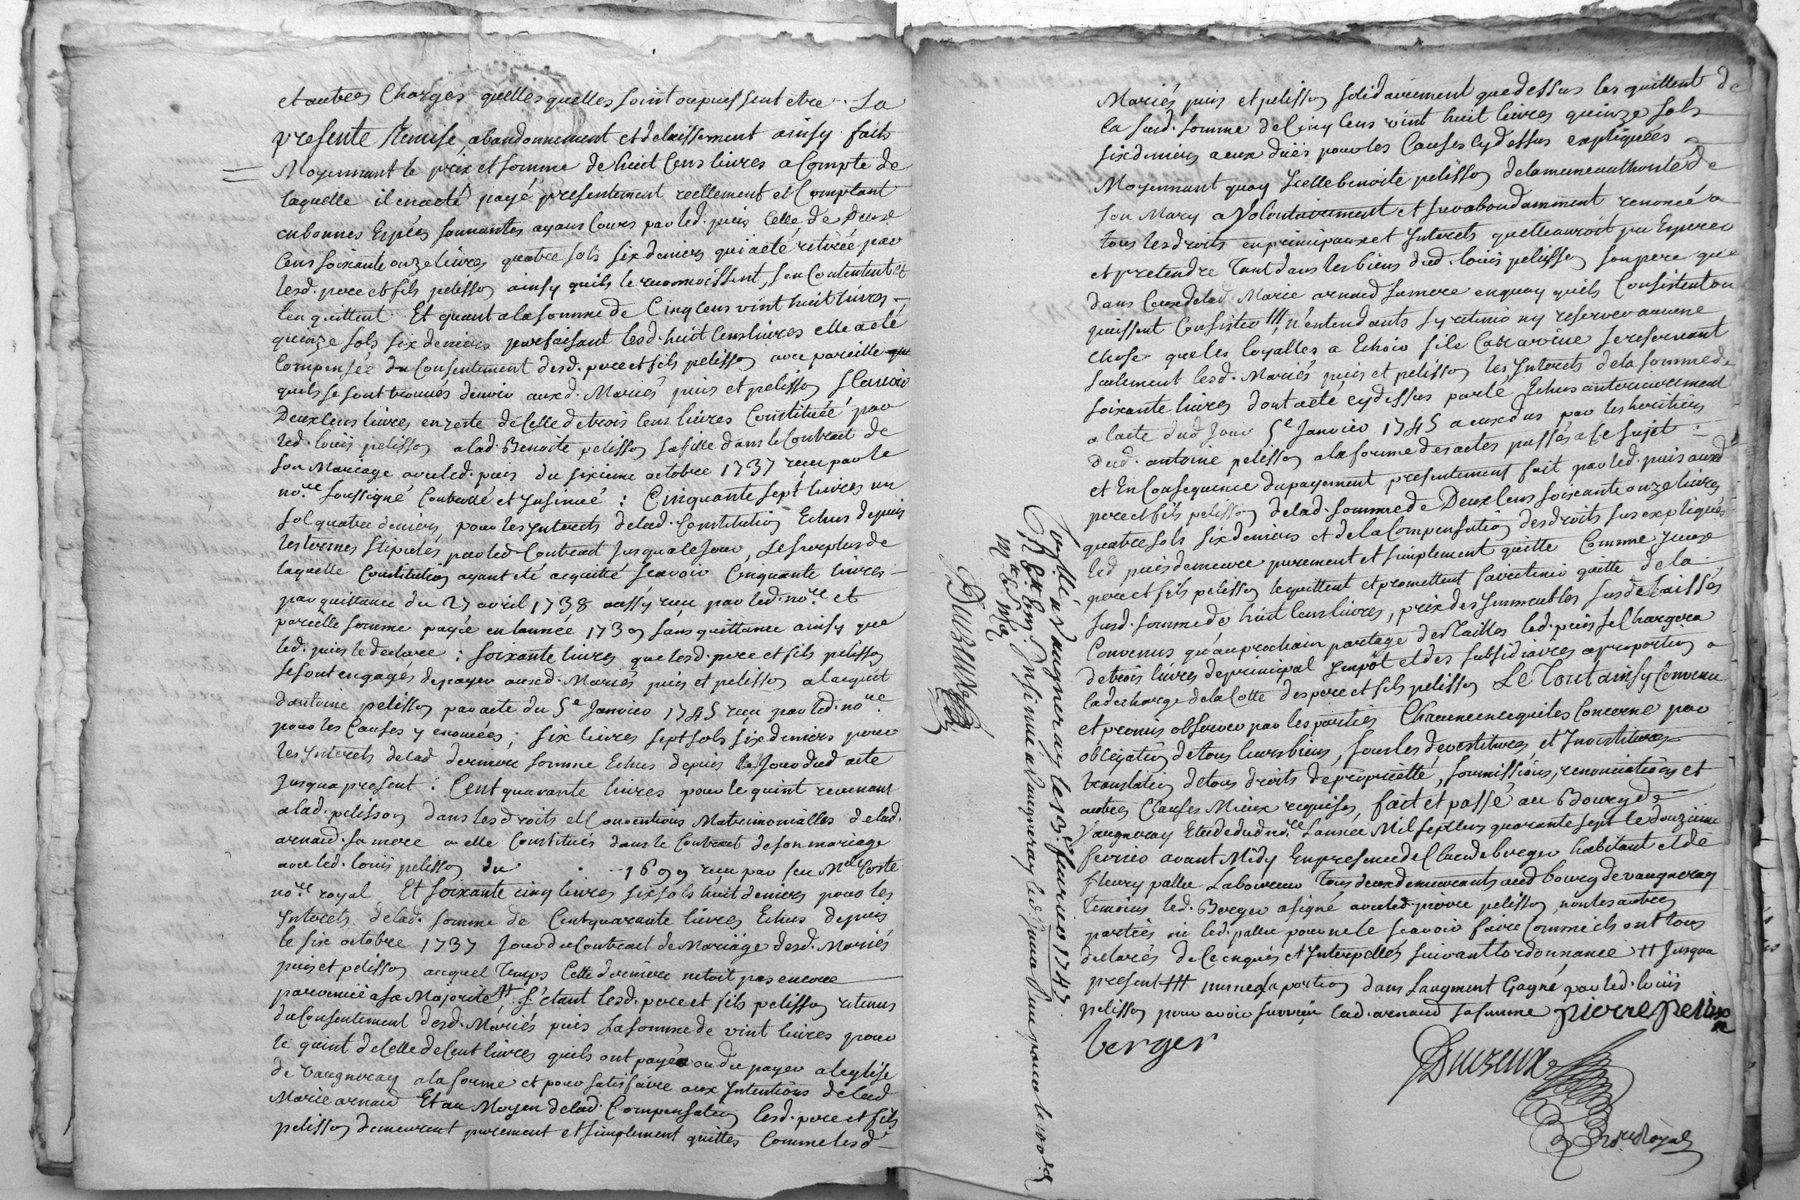 et autres Charges quelles quelles soint ou puissent etre. La
presente Remise, abandonnement et delaissement ainsy faits
Moyennant le prix et somme de huit Cens livres a Compte de
laquelle il en a eté payé presentement reellement et Comptant
en bonnes Espéces sonnantes ayans Cours par led. puis Celle de Deux
Cens soixante onze livres quatre sols six deniers qui a eté retirée par
lesd. pere et fils pelisson ainsy quils le reconnoissent, s'en Contentent et
l'en quittent Et quant a la somme de Cinq Cens vint huit livres
quinze sols six deniers parfaisant lesd. huit Cens livres elle a eté
Compensée du Consentement desd. pere et fils pelisson avec pareille
quils se sont trouvés devoir auxd. Mariés puis et pelisson Scavoir
Deux Cens livres en reste de Celle de trois Cens livres Constituée par
led. louis pelisson a lad. Benoite pelisson sa fille dans le Contract de
son Mariage avec led. puis du sixieme octobre 1737 reçu par le
no.re soussigné Controllé et Insinué : Cinquante sept livres un
sol quatre deniers pour les Interets de lad. Constitution Echus depuis
les termes stipulés par led. Contract Jusqu'a ce Jour, Le surplus de
laquelle Constitution ayant eté acquitté scavoir Cinquante livres
par quittance du 27 avril 1738 reçu par led. no.re et
pareille somme payée en l'année 1739 sans quittance ainsy que
led. puis le declare : soixante livres que lesd. pere et fils pelisson
se sont engagés de payer auxd. Mariés puis et pelisson a l'acquit
d'antoine pelisson par acte du 5.e Janvier 1745 reçu par led. no.re
pour les Causes y enoncées ; six livres sept sols six deniers pour
les Interets de lad. derniere somme Echus depuis le Jour dud. acte
Jusqu'a present : Cent quarante livres pour le quint revenant
a lad. pelisson dans les droits et Conventions Matrimonialles de lad.
arnaud sa mere a elle Constitués dans le Contract de son mariage
avec led. louis pelisson du 1699 reçu par feu M.e Coste
no.re royal Et soixante cinq livres six sols huit deniers pour les
Interets de lad. somme de Cent quarante livres Echus depuis
le six octobre 1737 Jour du Contract de Mariage desd. Mariés
puis et pelisson auquel temps Cette derniere netoit pas encore
parvenüe a sa Majorité ++. S'etant lesd. pere et fils pelisson retenus
du Consentement desd. Mariés puis La somme de vint livres pour
le quint de Celle de Cent livres quils ont payée ou du payer a leglise
de vaugneray a la forme et pour satisfaire aux Intentions de lad.
Marie arnaud Et au Moyen de lad. Compensation lesd. pere et fils
pelisson demeurent purement et simplement quittes Comme lesd.
Mariés puis et pelisson solidairement que dessus les quittent de
la susd. somme de Cinq Cens vint huit livres quinze sols
six deniers a eux düe pour les Causes cy dessus expliquées
Moyennant quoy Icelle benoite pelisson de la meme authorité de
son Mary a Volontairement et surabondamment renoncé a
tous les droits en principaux et Interets quelle auroit pu Esperer
et pretendre tant dans les biens dud. louis pelisson son pere que
dans Ceux de lad. Marie arnaud sa mere en quoy quils Consistent ou
puissent Consister +++ n'entendants sy retenir ny reserver aucune
chose que les loyalles a Echoir si le Cas arrive se reservant
seulement lesd. Mariés puis et pelisson les Interets de la somme de
soixante livres dont acte cy dessus parlé Echus anterieurement
a l'acte dud. Jour 5.e Janvier 1745 a eux dus par les heritiers
dud. antoine pelisson a la forme des actes passés a ce sujet :
et En Consequence du payement presentement fait par led. puis auxd.
pere et fils pelisson de lad. somme de Deux Cens soixante onze livres
quatre sols six deniers et de la Compensation des droits sus expliqués
led. puis demeure purement et simplement quitte Comme Iceux
pere et fils pelisson le quittent et promettent faire tenir quitte de la
susd. somme de huit Cens livres, prix des Immeubles sus delaissés
Convenus qu'au prochain partage des Tailles led. puis se Chargera
de trois livres de principal Impôt et des subsidiaires a proportion a
la decharge de la Cotte des pere et fils pelisson Le Tout ainsy Convenu
et promis observer par les parties Chacune en ce qui les Concerne par
obligation de tous leurs biens, sous les devestitures et Investitures
translation de tous droits de proprietté, soumissions, renonciations et
autres Clauses Mieux requises, fait et passé au Bourg de
Vaugneray Etude dud. no.re l'année Mil sept cens quarante sept le douzieme
fevrier avant Midy En presence de Claude berger habitant et de
fleury pallu Laboureur tous deux demeurants aud. bourg de vaugneray
temoins led. Berger a signé avec led. pierre pelisson, non les autres
parties ni led. pallu pour ne le scavoir faire Comme ils ont tous
declarés de Ce enquis et Interpellés suivant l'ordonnance ++ Jusqua
present +++ meme sa portion dans l'augment Gagné par led. louis
pelisson pour avoir survecu lad. arnaud sa femme pierre pelisson
berger
Duxeux
no.re Royal
Contollé a Vaugneray les 12.e fevrier 1747
Insinué a Vaugneray led. Jour
Duxeux